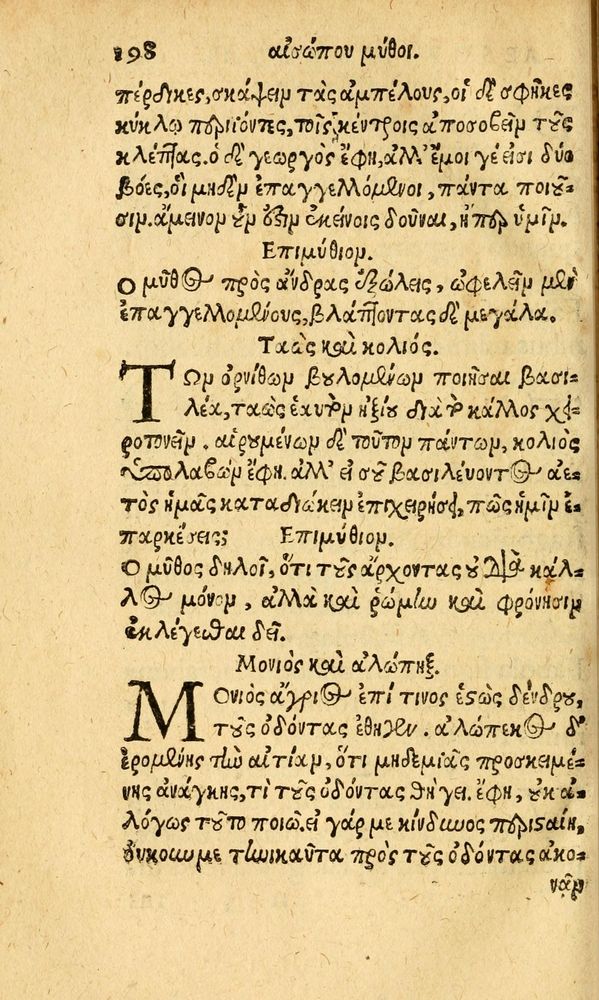 198 αἰσώπου μύθοι.
πέρδικες, σκάψειν τὰς ἀμπέλους, οἱ δὲ σφῆκες
κύκλῳ περιϊόντες, τοῖς κέντροις ἀποσοβεῖν τοὺς
κλέπτας. ὁ δὲ γεωργὸς ἔφη, ἀλλ' ἔμοι γέ εἰσι δύο
βόες, οἳ μηδὲν ἐπαγγελλόμενοι, πάντα ποιοῦ-
σιν. ἄμεινον οὖν ὅξιν ἐκείνοις δοῦναι, ἤπερ ὑμῖν.
Ἐπιμύθιον.
Ο μῦθος πρὸς ἄνδρας ἐξώλεις, ὠφελεῖν μὲν
ἐπαγγελλομένους, βλάπτοντας δὲ μεγάλα.
Ταὼς καὶ κολιός.
Τῶν ὀρνίθων βουλομένων ποιῆσαι βασι-
λέα, ταὼς ἑαυτὸν ἠξίου διὰ τὸ κάλλος χει-
ροτονεῖν. αἱρουμένων δὲ τοῦτον πάντων, κολιὸς
ὑπολαβὼν ἔφη. ἀλλ' εἰ σοῦ βασιλεύοντος ἀε-
τὸς ἡμᾶς καταδιώκειν ἐπιχειρήσει, πῶς ἡμῖν ἐ-
παρκέσεις; Ἐπιμύθιον.
Ο μῦθος δηλοῖ, ὅτι τοὺς ἄρχοντας οὐ διὰ κάλ-
λος μόνον, ἀλλὰ καὶ ῥώμην καὶ φρόνησιν
ἐκλέγεσθαι δεῖ.
Μονιὸς καὶ ἀλώπηξ.
Μονιὸς ἄγριος ἐπί τινος ἑστὼς δένδρου,
τοὺς ὀδόντας ἔθηγεν. ἀλώπεκος δ'
ἐρομένης τὴν αἰτίαν, ὅτι μηδεμιᾶς προσκειμέ-
νης ἀνάγκης, τί τοὺς ὀδόντας θήγει. ἔφη, οὐκ ἀ-
λόγως τοῦτο ποιῶ. εἰ γάρ με κίνδυνος περισταίη,
οὐκ ὀκνῶμε τηνικαῦτα πρὸς τοὺς ὀδόντας ἀκο-
νᾶν